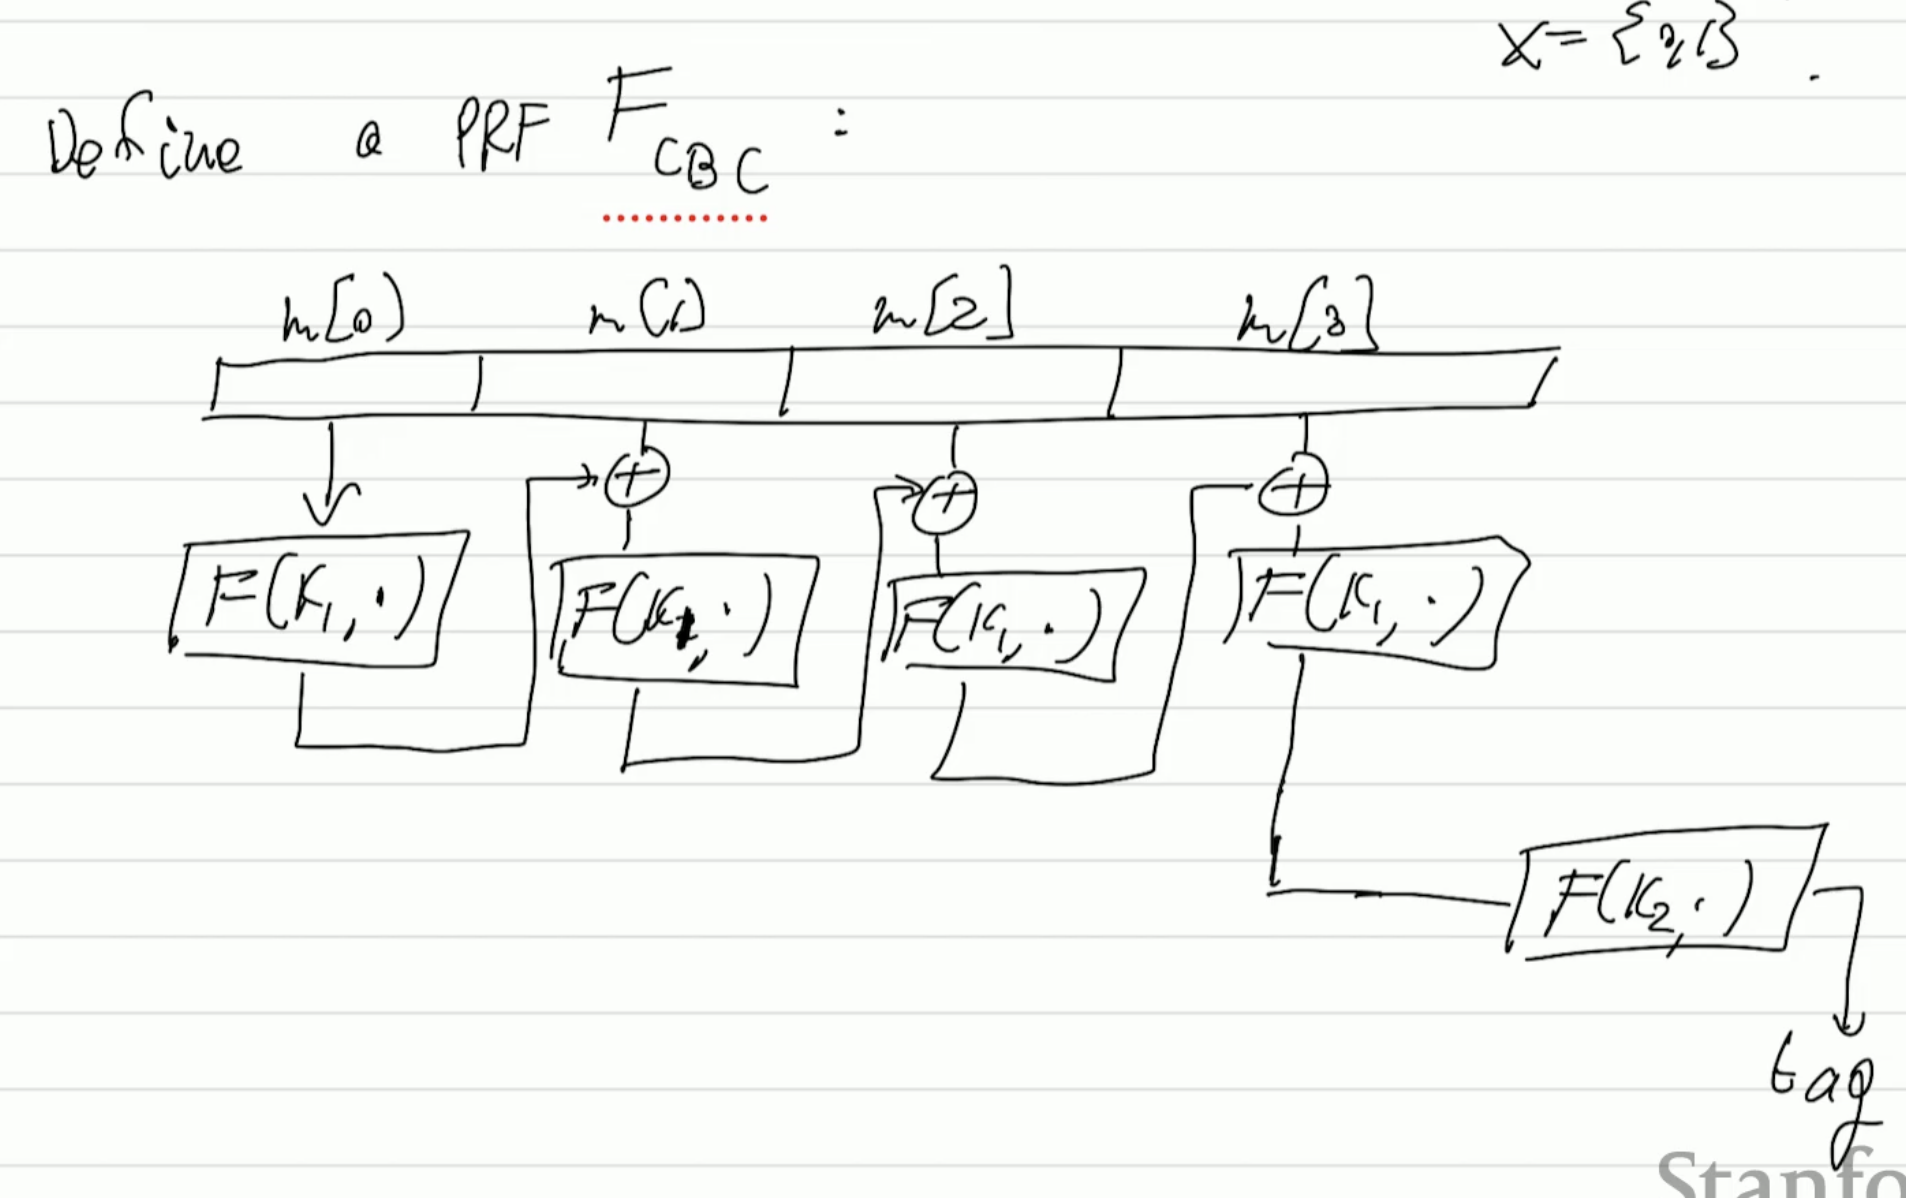 X = {0,1}
Define a PRF F_CBC :
m[0] m[1] m[2] m[3]
⊕ ⊕ ⊕
F(K₁, ·) F(K₁, ·) F(K₁, ·) F(K₁, ·)
F(K₂, ·)
tag
Stanfo